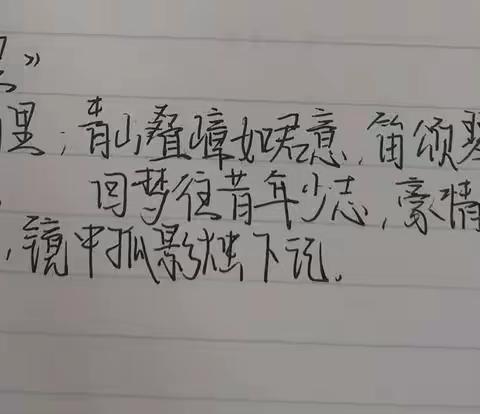 》
里，青山叠嶂如君意，笛颂
回梦往昔年少志，豪情
，镜中孤影烛下记。